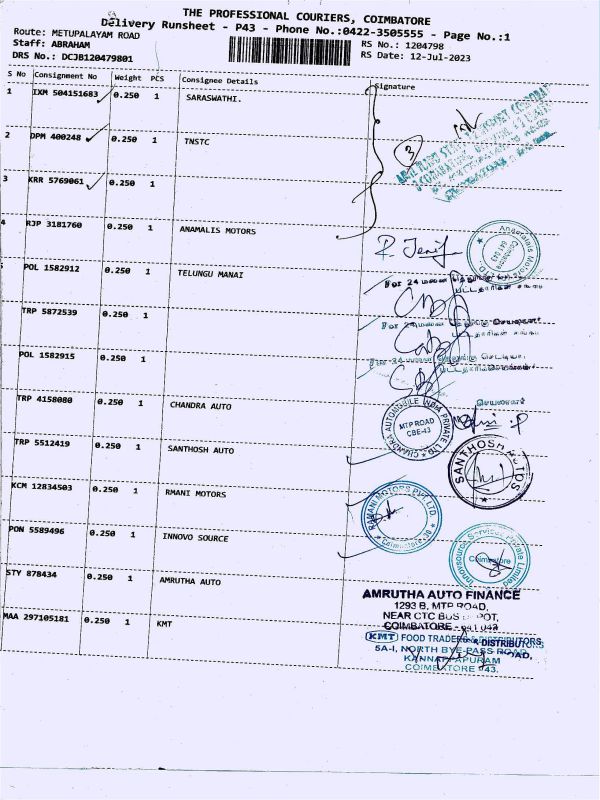 THE PROFESSIONAL COURIERS, COIMBATORE
Delivery Runsheet - P43 - Phone No.:0422-3505555 - Page No.:1
Route: METUPALAYAM ROAD
RS No.: 1204798
Staff: ABRAHAM
RS Date: 12-Jul-2023
DRS No.: DCJB120479801
S No Consignment No Weight PCS Consignee Details Signature
1 IXM 504151683 0.250 1 SARASWATHI.
2 DPM 400248 0.250 1 TNSTC
3
3 KRR 5769061 0.250 1
4 RJP 3181760 0.250 1 ANAMALIS MOTORS
Coimbatore
POL 1582912 0.250 1 TELUNGU MANAI
24 மனை
TRP 5872539 0.250 1
24 மனை
POL 1582915 0.250 1
24 மனை
TRP 4158080 0.250 1 CHANDRA AUTO
CHANDRA AUTOMOBILE INDIA PRIVATE LTD
MTP ROAD
CBE-43
TRP 5512419 0.250 1 SANTHOSH AUTO
SANTHOSH MOTOS
KCM 12834503 0.250 1 RMANI MOTORS
RAMANI MOTORS PVT LTD
Coimbatore
PON 5589496 0.250 1 INNOVO SOURCE
Innovsource Services Private Limited
Coimbatore
STY 878434 0.250 1 AMRUTHA AUTO
AMRUTHA AUTO FINANCE
1293 B, MTP ROAD,
NEAR CTC BUS DEPOT,
COIMBATORE - 641 043
MAA 297105181 0.250 1 KMT
KMT FOOD TRADERS & DISTRIBUTORS
5A-I, NORTH BYE-PASS ROAD,
KANNAPPAPURAM
COIMBATORE 43.